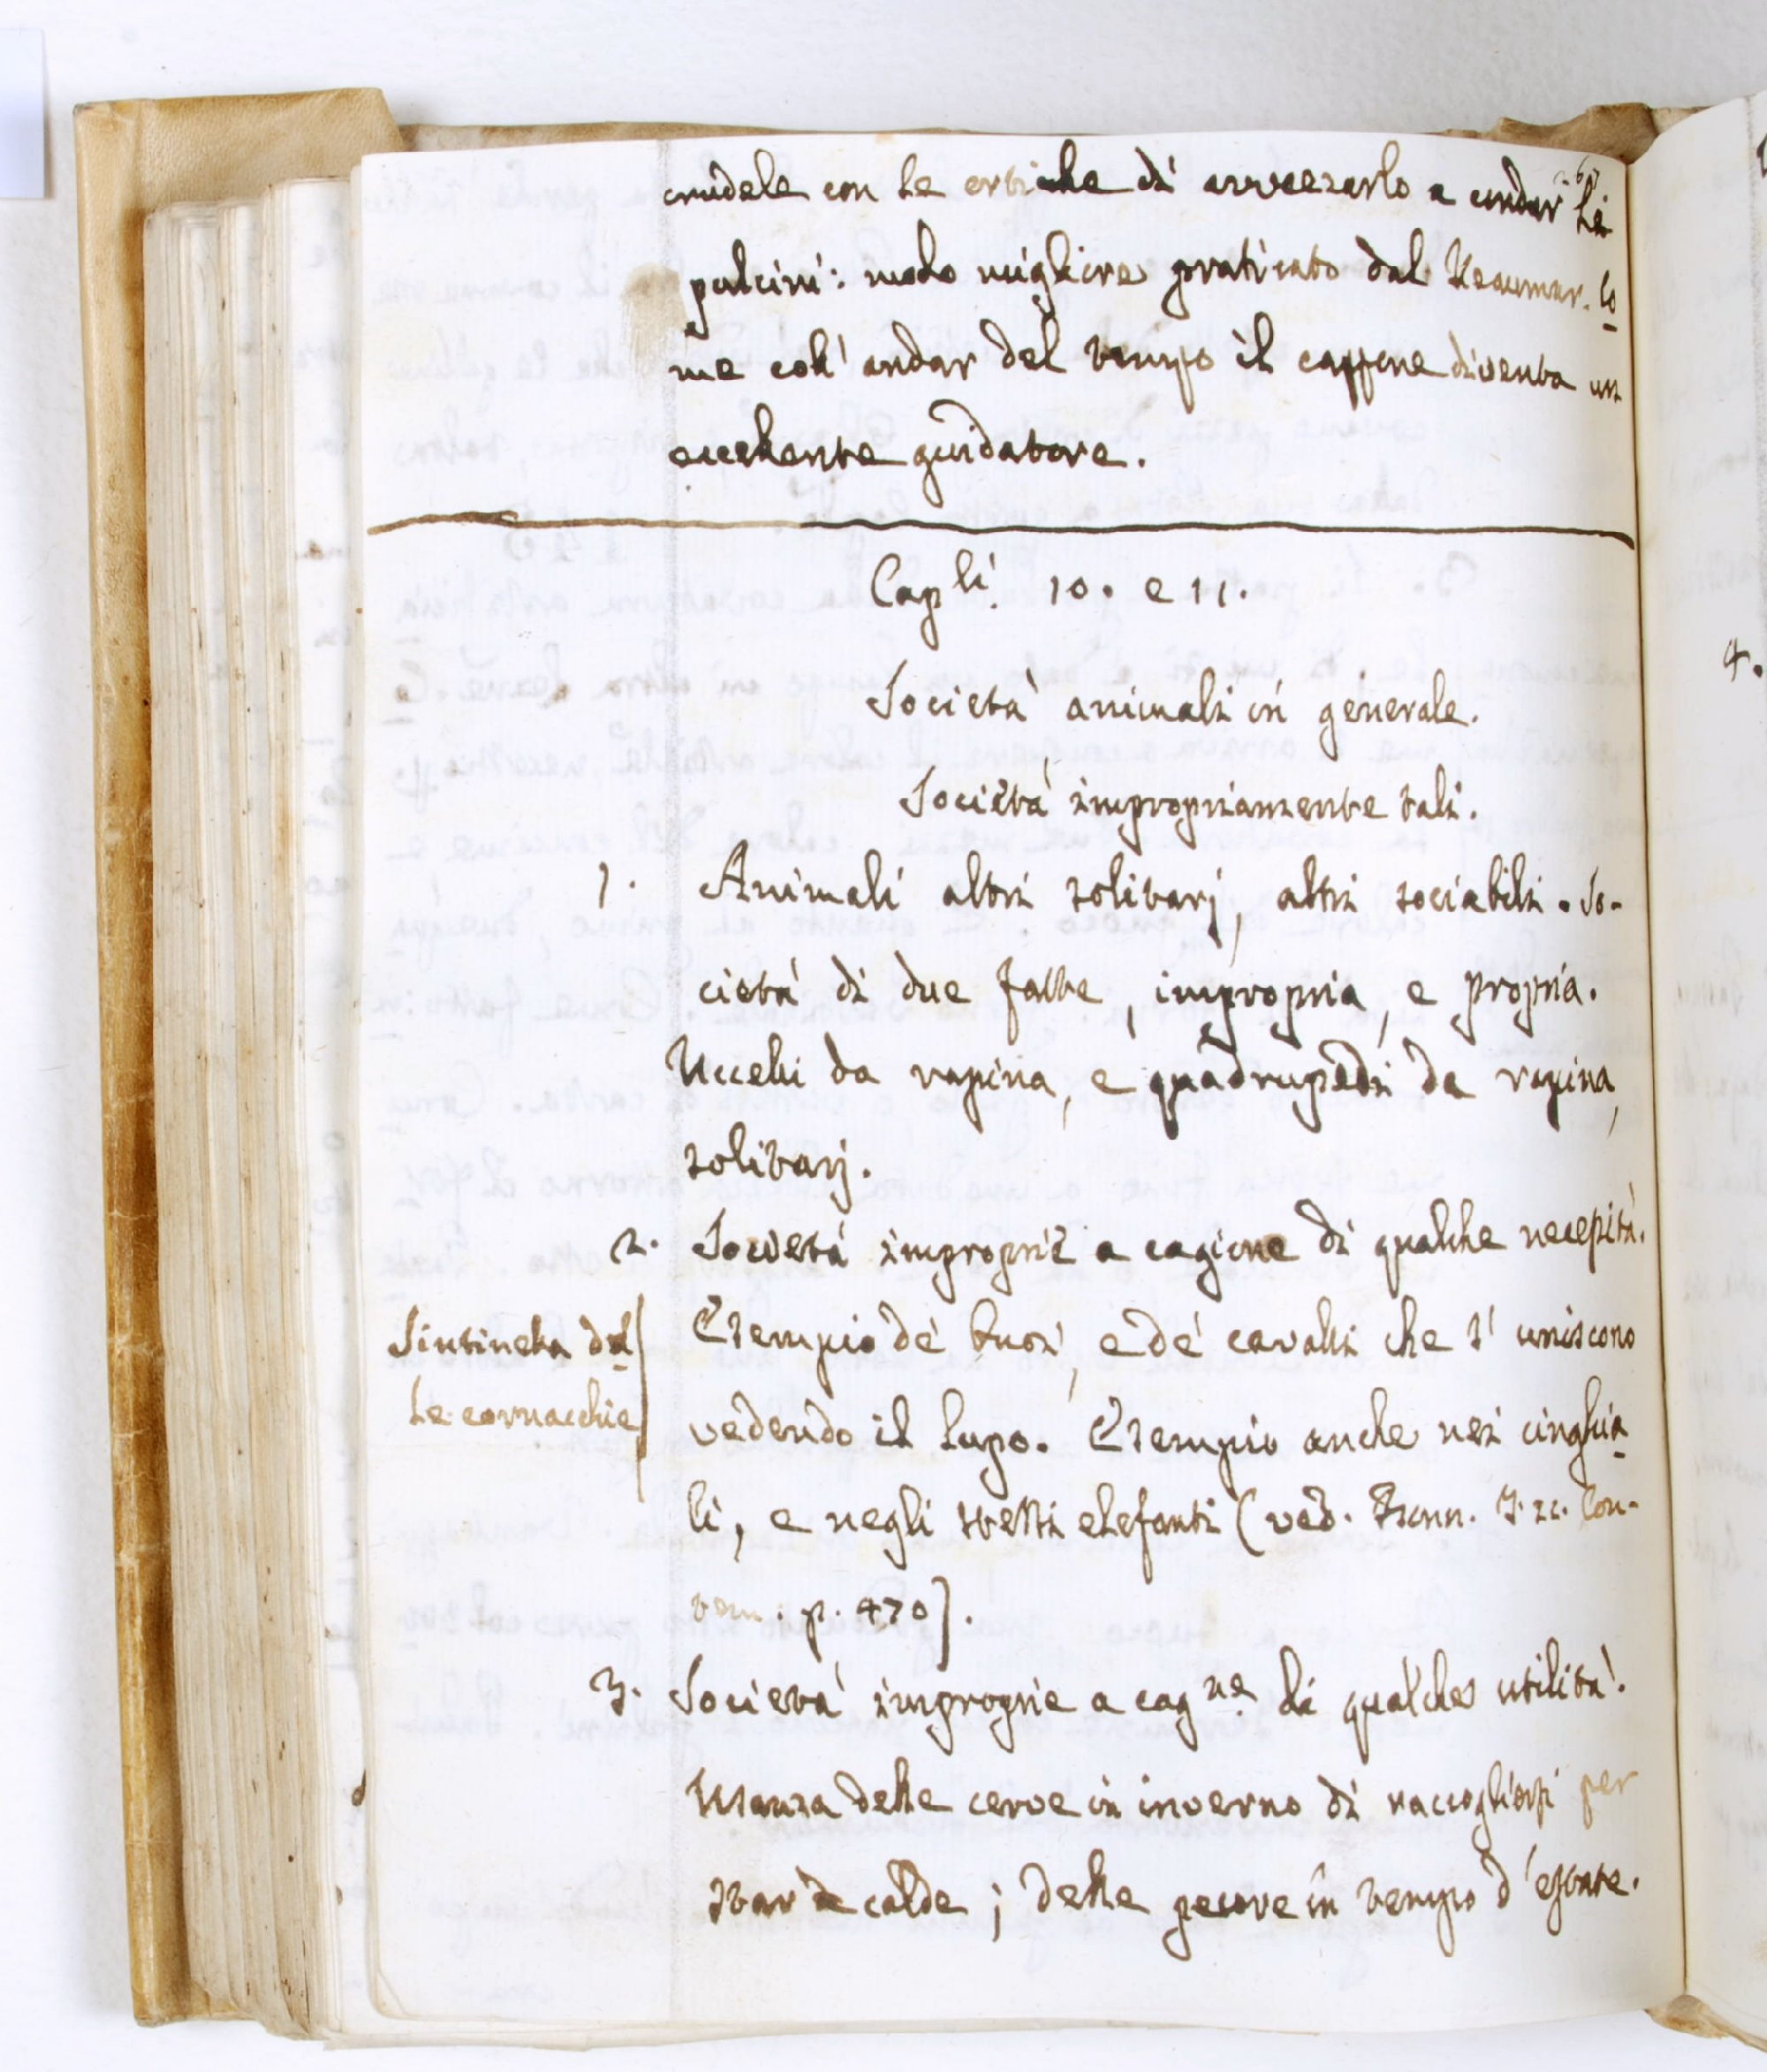 crudele con le ortiche di avvezarlo a condur li
pulcini: modo migliore praticato dal Reaumur. Co
me coll' andar del tempo il cappone diventa un
eccellente guidatore.
Capli. 10. e 11.
Società animali in generale.
Società impropriamente tali.
1. Animali altri solitarj, altri sociabili. So-
cietà di due fatte, impropria, e propria.
Uccelli da rapina, e quadrupedi da rapina,
solitarj.
2. Società improprie a cagione di qualche necessità.
Esempio de' buoi, e de' cavalli che s' uniscono
vedendo il lupo. Esempio anche nei cinghia
li, e negli stessi elefanti (ved. Con-
tem. p. 470).
Sintinella del
le cornacchie
3. Società improprie a cagne. di qualche utilità.
Usanza delle cerve in inverno di raccogliersi per
star calde; delle pecore in tempo d' estate.